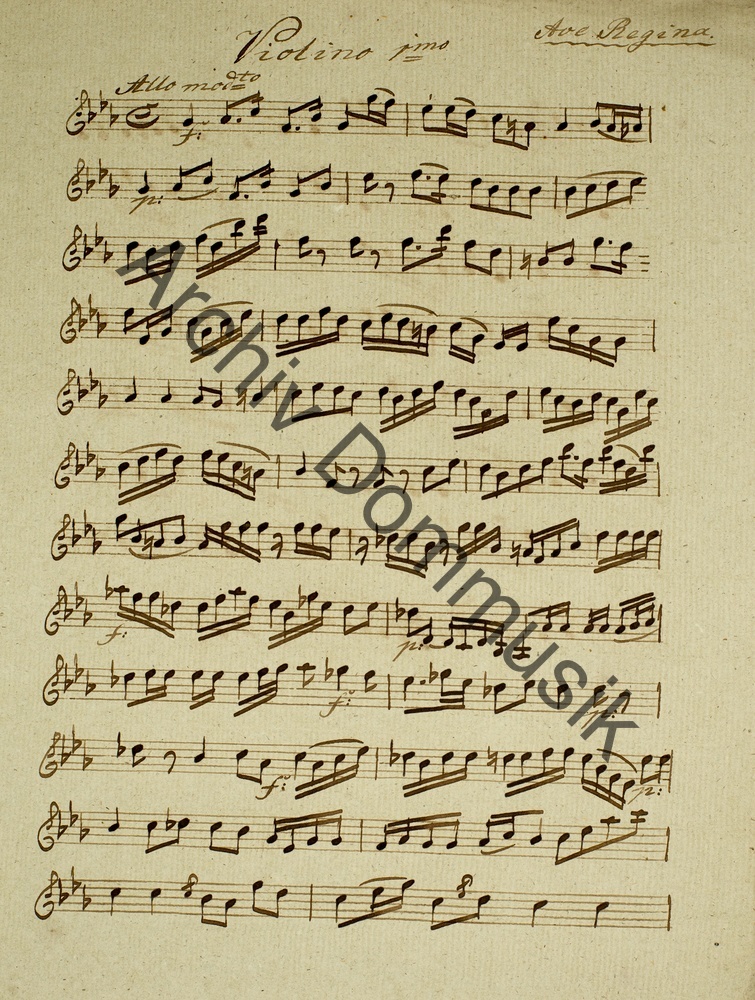 Violino 1mo
Ave Regina.
Allo modto
f:
p:
f:
p:
f:
p:
f:
p:
Archiv Dommusik